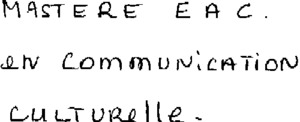 MASTERE EAC.
en COMMUNiCATiON
CULTURelle.